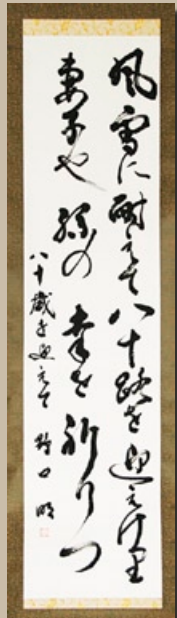 風雪に耐えて八十路を迎えけり
妻子や孫の幸を祈りつ
八十歳を迎えて 野口 明